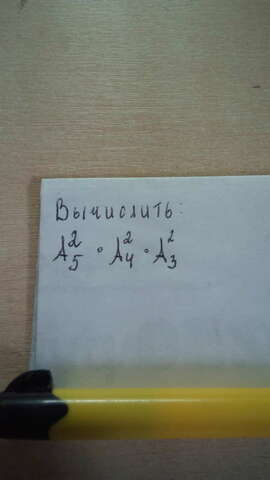 Вычислить:
A₅² · A₄² · A₃²